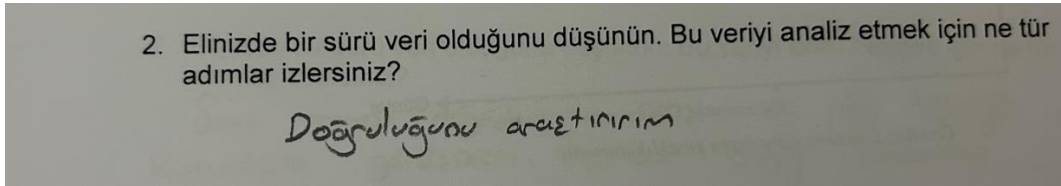 2. Elinizde bir sürü veri olduğunu düşünün. Bu veriyi analiz etmek için ne tür
adımlar izlersiniz?
Doğruluğunu araştırırım